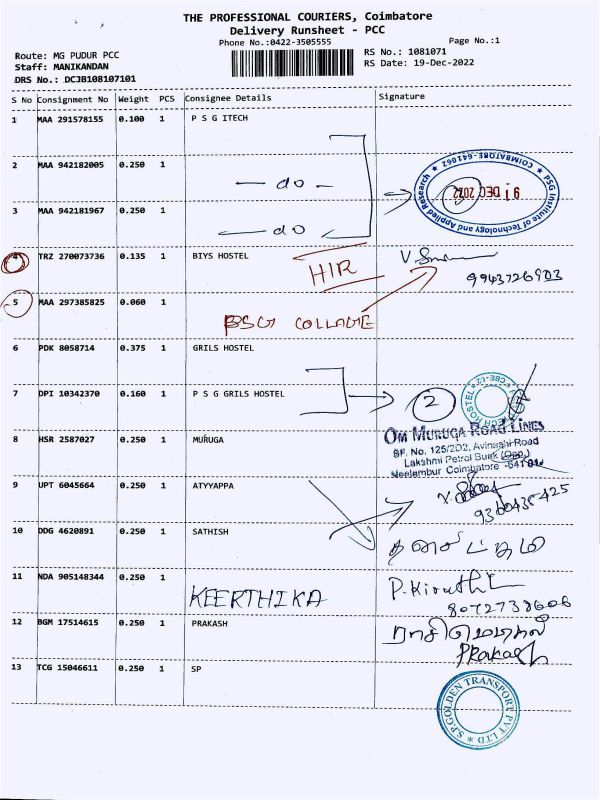 THE PROFESSIONAL COURIERS, Coimbatore
Delivery Runsheet - PCC
Phone No.:0422-3505555
Page No.:1
Route: MG PUDUR PCC
RS No.: 1081071
Staff: MANIKANDAN
RS Date: 19-Dec-2022
DRS No.: DCJB108107101
S No Consignment No Weight PCS Consignee Details Signature
1 MAA 291578155 0.100 1 P S G ITECH
2 MAA 942182005 0.250 1 do
PSG Institute of Technology and Applied Research * COIMBATORE-641062 *
3 MAA 942181967 0.250 1 do
4 TRZ 270073736 0.135 1 BIYS HOSTEL HIR
9943726903
5 MAA 297385825 0.060 1
PSG COLLAGE
6 PDK 8058714 0.375 1 GRILS HOSTEL
7 DPI 10342370 0.160 1 P S G GRILS HOSTEL 2
8 HSR 2587027 0.250 1 MURUGA
OM MURUGA ROAD LINES
SF. No. 125/2D2, Avinashi Road
Lakshmi Petrol Bunk (Opp.)
Neelambur Coimbatore
9 UPT 6045664 0.250 1 ATYYAPPA
10 DDG 4620891 0.250 1 SATHISH
11 NDA 905148344 0.250 1 KEERTHIKA
8072738606
12 BGM 17514615 0.250 1 PRAKASH
Prakash
13 TCG 15046611 0.250 1 SP
S.P.GOLDEN TRANSPORT PVT LTD